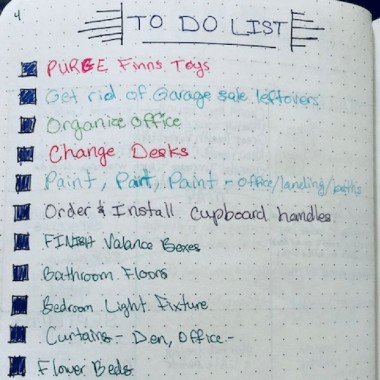 4
TO DO LIST
PURGE Finns Toys
Get rid of Garage sale leftovers
Organize office
Change Desks
Paint, Paint, Paint - office/landing/baths
Order & Install cupboard handles
FINISH Valance Boxes
Bathroom Floors
Bedroom Light Fixture
Curtains - Den, Office -
Flower Beds